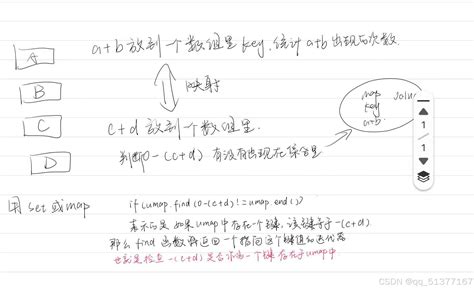 A
B
C
D
a+b 放到一个数组里 key, 统计 a+b 出现的次数.
映射
c+d 放到一个数组里.
判断 0-(c+d) 有没有出现在集合里
map
key
a+b
1
1
用 set 或 map
if(umap.find(0-(c+d)) != umap.end())
表示的是 如果 umap 中存在一个键, 该键等于 -(c+d).
那么 find 函数将返回一个指向这个键值的迭代器
也就是检查 -(c+d) 是否作为一个键 存在于 umap 中
CSDN @qq_51377167